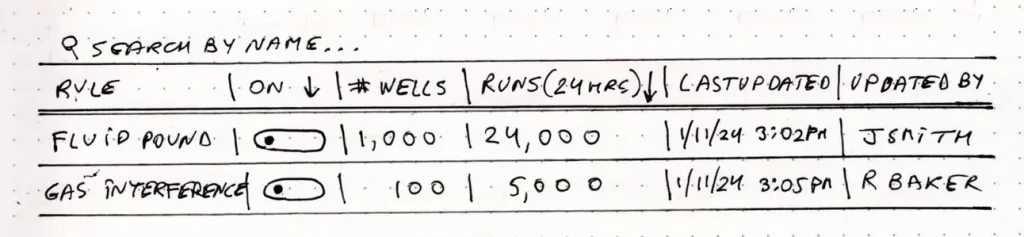 SEARCH BY NAME...
RULE | ON ↓ | # WELLS | RUNS(24HRS)↓ | LASTUPDATED | UPDATED BY
FLUID POUND | 1,000 | 24,000 | 1/11/24 3:02PM | JSMITH
GAS INTERFERENCE | 100 | 5,000 | 1/11/24 3:05PM | R BAKER